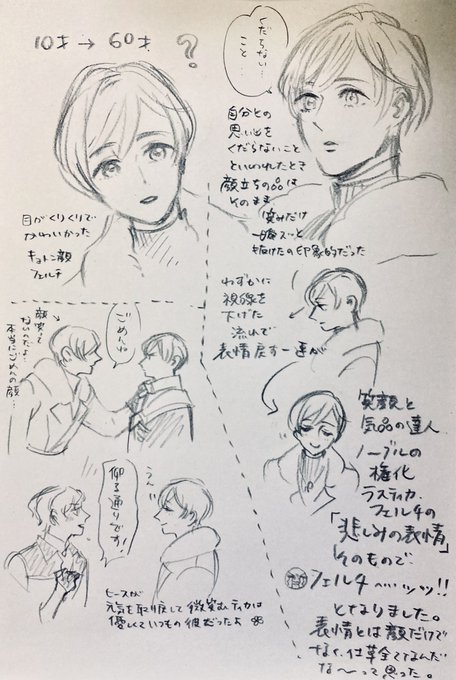 10才→60才 ?
目がくりくりで
かわいかった
キョトン顔
フェルチ
くだらない…
こと…
自分との
思い出を
くだらないこと
といわれたとき
顔立ちの品は
そのまま
笑みだけ
一瞬スッと
抜けたの印象的だった
わずかに
視線を
下げた
流れで
表情戻す一連が
顔笑って
ないのよ…
本当にごめんの顔…
ごめんね
仰る通りです!
うん
ヒースが
元気を取り戻して微笑むティカは
優しくていつもの彼だったよ
笑顔と
気品の達人
ノーブルの
権化
ラスティカ・
フェルチの
「悲しみの表情」
そのもので
フェルチ〜ッッ!!
となりました。
表情とは顔だけで
なく、仕草全てなんだ
な〜って思った。